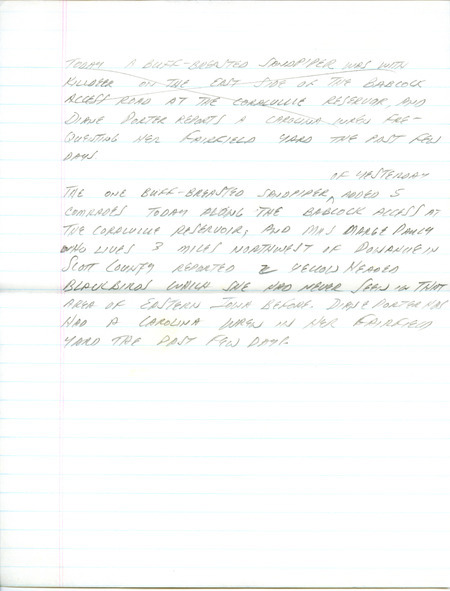 TODAY A BUFF-BREASTED SANDPIPER WAS WITH
KILLDEER ON THE EAST SIDE OF THE BABCOCK
ACCESS ROAD AT THE CORALVILLE RESERVOIR, AND
DIANE PORTER REPORTS A CAROLINA WREN FRE-
QUENTING HER FAIRFIELD YARD THE PAST FEW
DAYS
OF YESTERDAY
THE ONE BUFF-BREASTED SANDPIPER, ADDED 5
COMRADES TODAY ALONG THE BABCOCK ACCESS AT
THE CORALVILLE RESERVOIR, AND MRS MARGE PAULY
WHO LIVES 3 MILES NORTHWEST OF DONAHUE IN
SCOTT COUNTY REPORTED 2 YELLOW HEADED
BLACKBIRDS WHICH SHE HAD NEVER SEEN IN THAT
AREA OF EASTERN IOWA BEFORE. DIANE PORTER HAS
HAD A CAROLINA WREN IN HER FAIRFIELD
YARD THE PAST FEW DAYS.